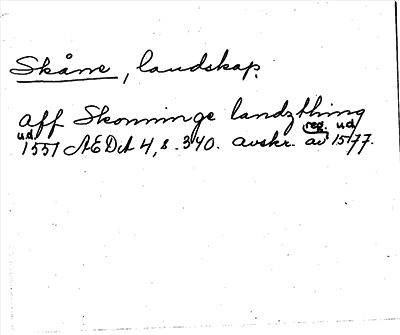 Skåne, landskap.
aff Skonninge landzthing
u.d. 1551 AEDA 4, s. 340. avskr. av reg. u.d. 1577.